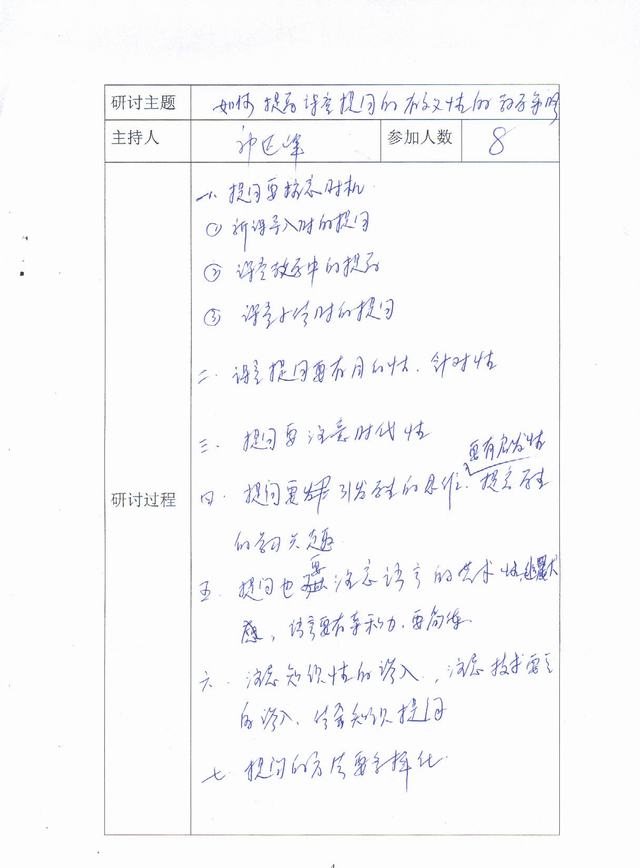 研讨主题 如何提高课堂提问的有效性的教学策略
主持人 参加人数 8
研讨过程
一、提问要注意时机
① 新课导入时的提问
② 课堂教学中的提问
③ 课堂小结时的提问
二、课堂提问要有目的性、针对性
三、提问要注意时代性
要有启发性
四、提问要 引发学生的思维、提高学生
的学习兴趣
五、提问也要注意语言的艺术性、幽默
感，语言要有亲和力、要简练
六、注意知识性的渗入，注意技术要
的渗入、结合知识提问
七、提问的方式要多样化